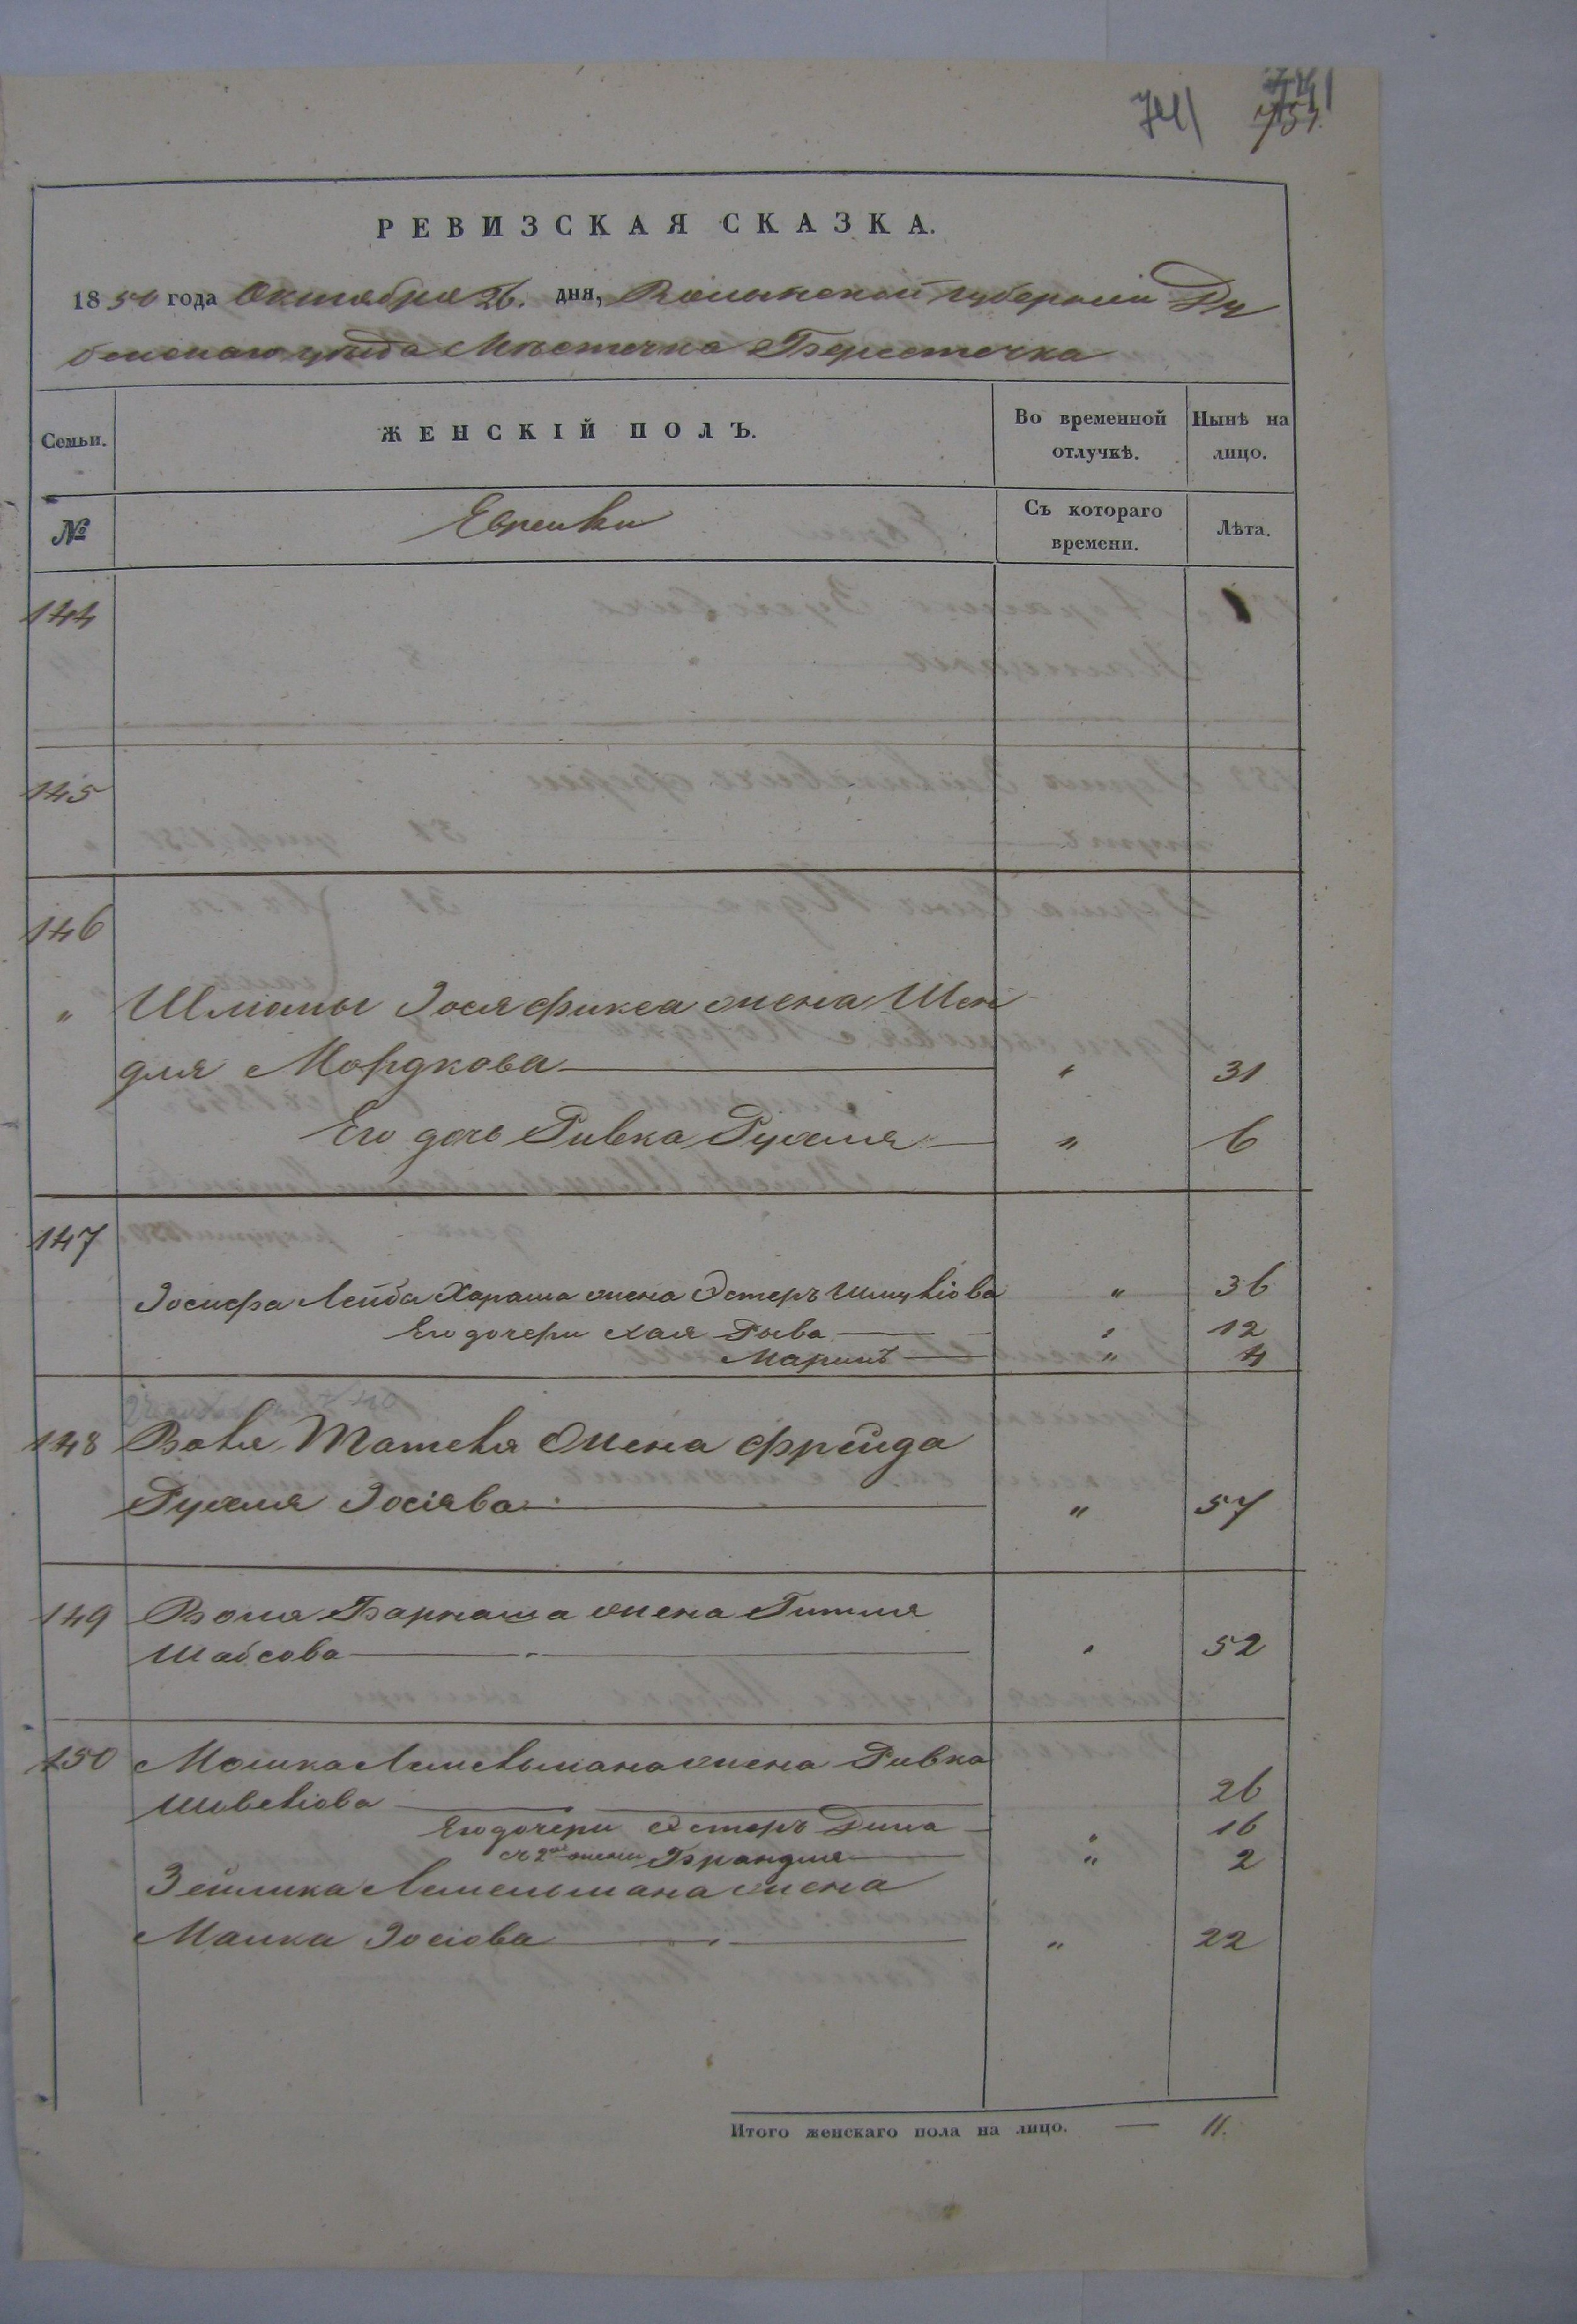 741
751.
РЕВИЗСКАЯ СКАЗКА.
1850 года Октября 26. дня, Волынской губерніи Ду
бенскаго уѣзда Мѣстечка Берестечка
Семьи. ЖЕНСКІЙ ПОЛЪ. Во временной отлучкѣ. Нынѣ на лицо.
№ Еврейки Съ котораго времени. Лѣта.
144
145
146
" Шлиомы Зося жена Шен
для Мордкова " 31
Его дочь Ривка Рухля " 6
147
Іосифа Лейба Хараша жена Эстеръ " 36
Его дочери Хая Рыва " 12
Маримъ " 4
148 Вовка жена Фрейда
Рухля Іосіева " 57
149 Воля Барнаша жена Гитля
Шабсова " 52
150 Мошка жена Ривка
26
Его дочери Эстеръ Дина " 16
съ 2ой жены Брандля " 2
Зейлика жена
Малка Іосіова " 22
Итого женскаго пола на лицо. — 11.